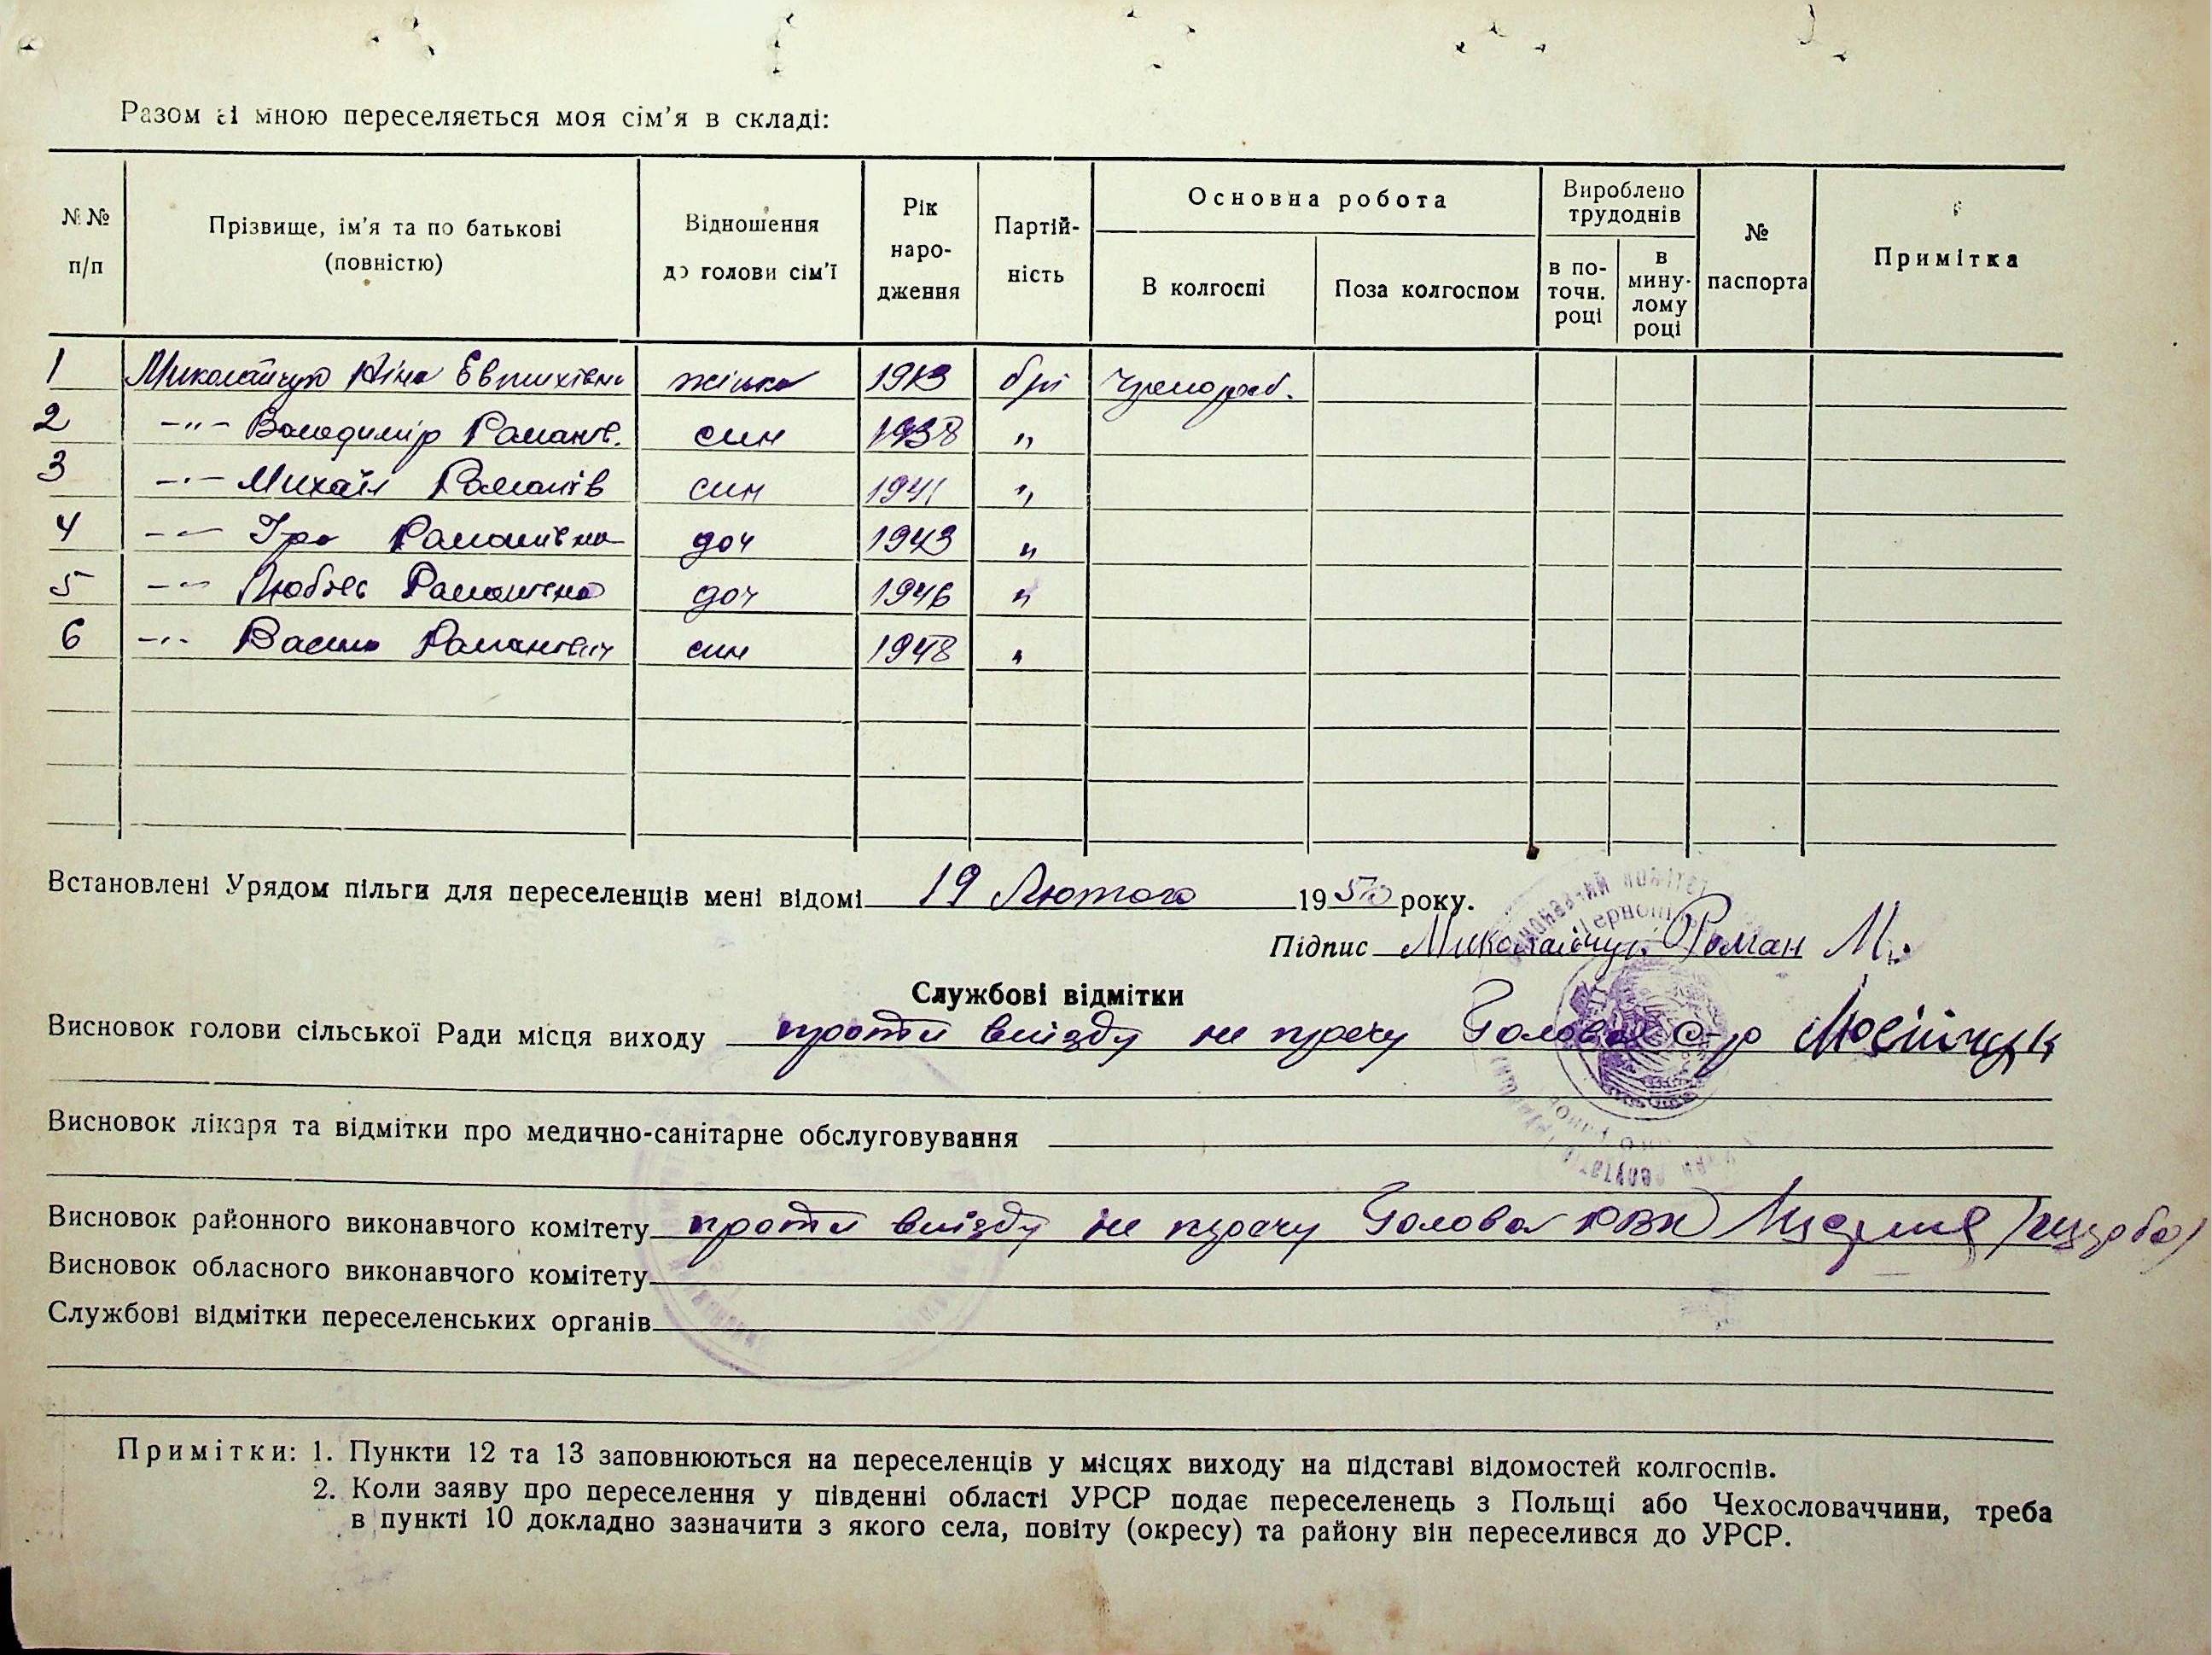 Разом зі мною переселяється моя сім'я в складі:
№№ п/п
Прізвище, ім'я та по батькові (повністю)
Відношення до голови сім'ї
Рік народження
Партійність
Основна робота
В колгоспі
Поза колгоспом
Вироблено трудоднів
в поточн. році
в минулому році
№ паспорта
Примітка
1 Миколайчук Ніна жінка 1913 б/п
2 -"- Володимир Романів. син 1938 "
3 -"- Михаїл Романів син 1941 "
4 -"- Іра Романівна доч 1943 "
5 -"- Любов Романівна доч 1946 "
6 -"- Василь Романович син 1948 "
Встановлені Урядом пільги для переселенців мені відомі 19 Лютого 1950 року.
Підпис Миколайчук Роман М.
Службові відмітки
Висновок голови сільської Ради місця виходу проти виїзду не пречу Голова с-р
Висновок лікаря та відмітки про медично-санітарне обслуговування
Висновок районного виконавчого комітету проти виїзду не пречу Голова РВК
Висновок обласного виконавчого комітету
Службові відмітки переселенських органів
Примітки: 1. Пункти 12 та 13 заповнюються на переселенців у місцях виходу на підставі відомостей колгоспів.
2. Коли заяву про переселення у південні області УРСР подає переселенець з Польщі або Чехословаччини, треба
в пункті 10 докладно зазначити з якого села, повіту (окресу) та району він переселився до УРСР.